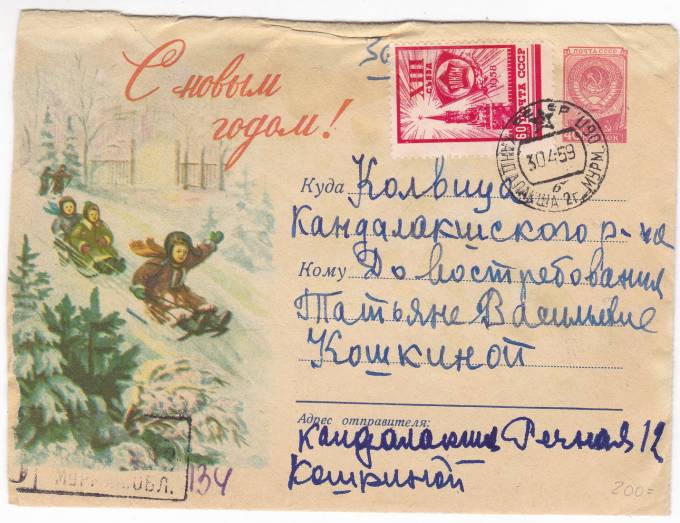 С новым
годом!
За
XIII
СЪЕЗД
ВЛКСМ
1958
60
ПОЧТА СССР
ПОЧТА СССР
40
30459
Куда Колвица
Кандалакшского р-на
Кому До востребования
Татьяне Васильевне
Кошкиной
Адрес отправителя:
Кандалакша Речная 12
Кошкиной
МУРМ. ОБЛ.
134
200=